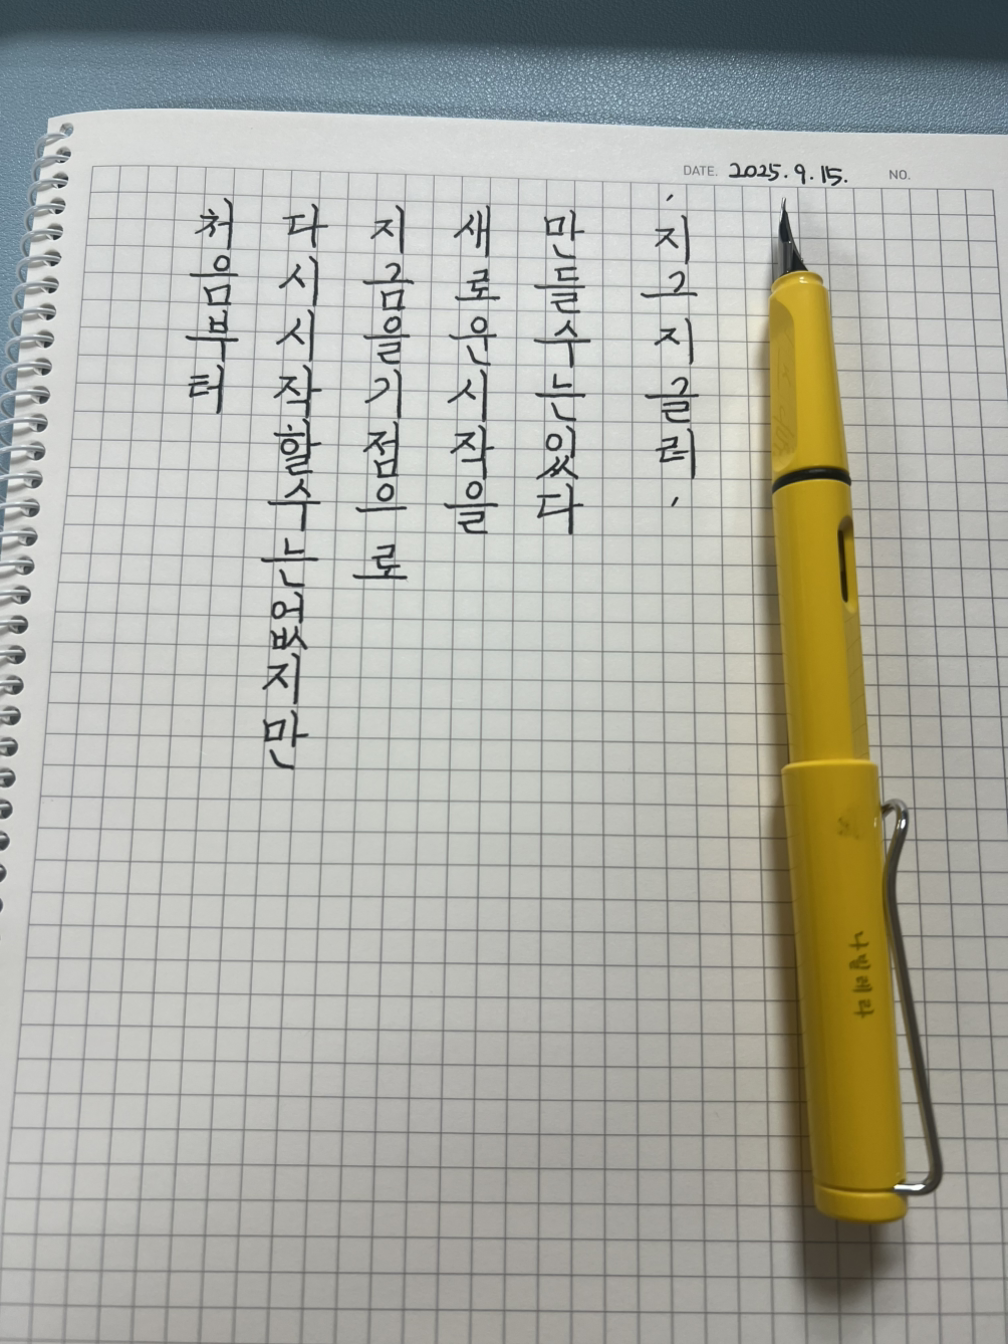 DATE. 2025.9.15. NO.
처음부터
다시시작할수는없지만
지금을기점으로
새로운시작을
만들수는있다
'지그지글러'
나빌레라